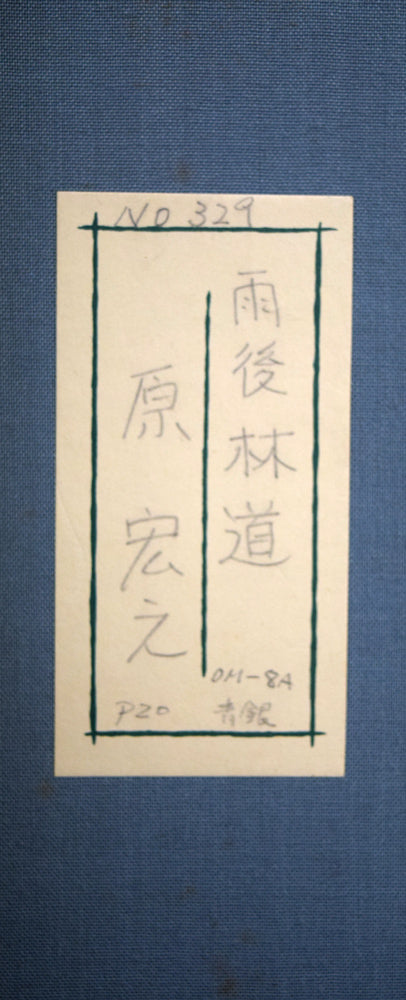 NO 329
雨後林道
原 宏之
OM-8A
青銀
P20